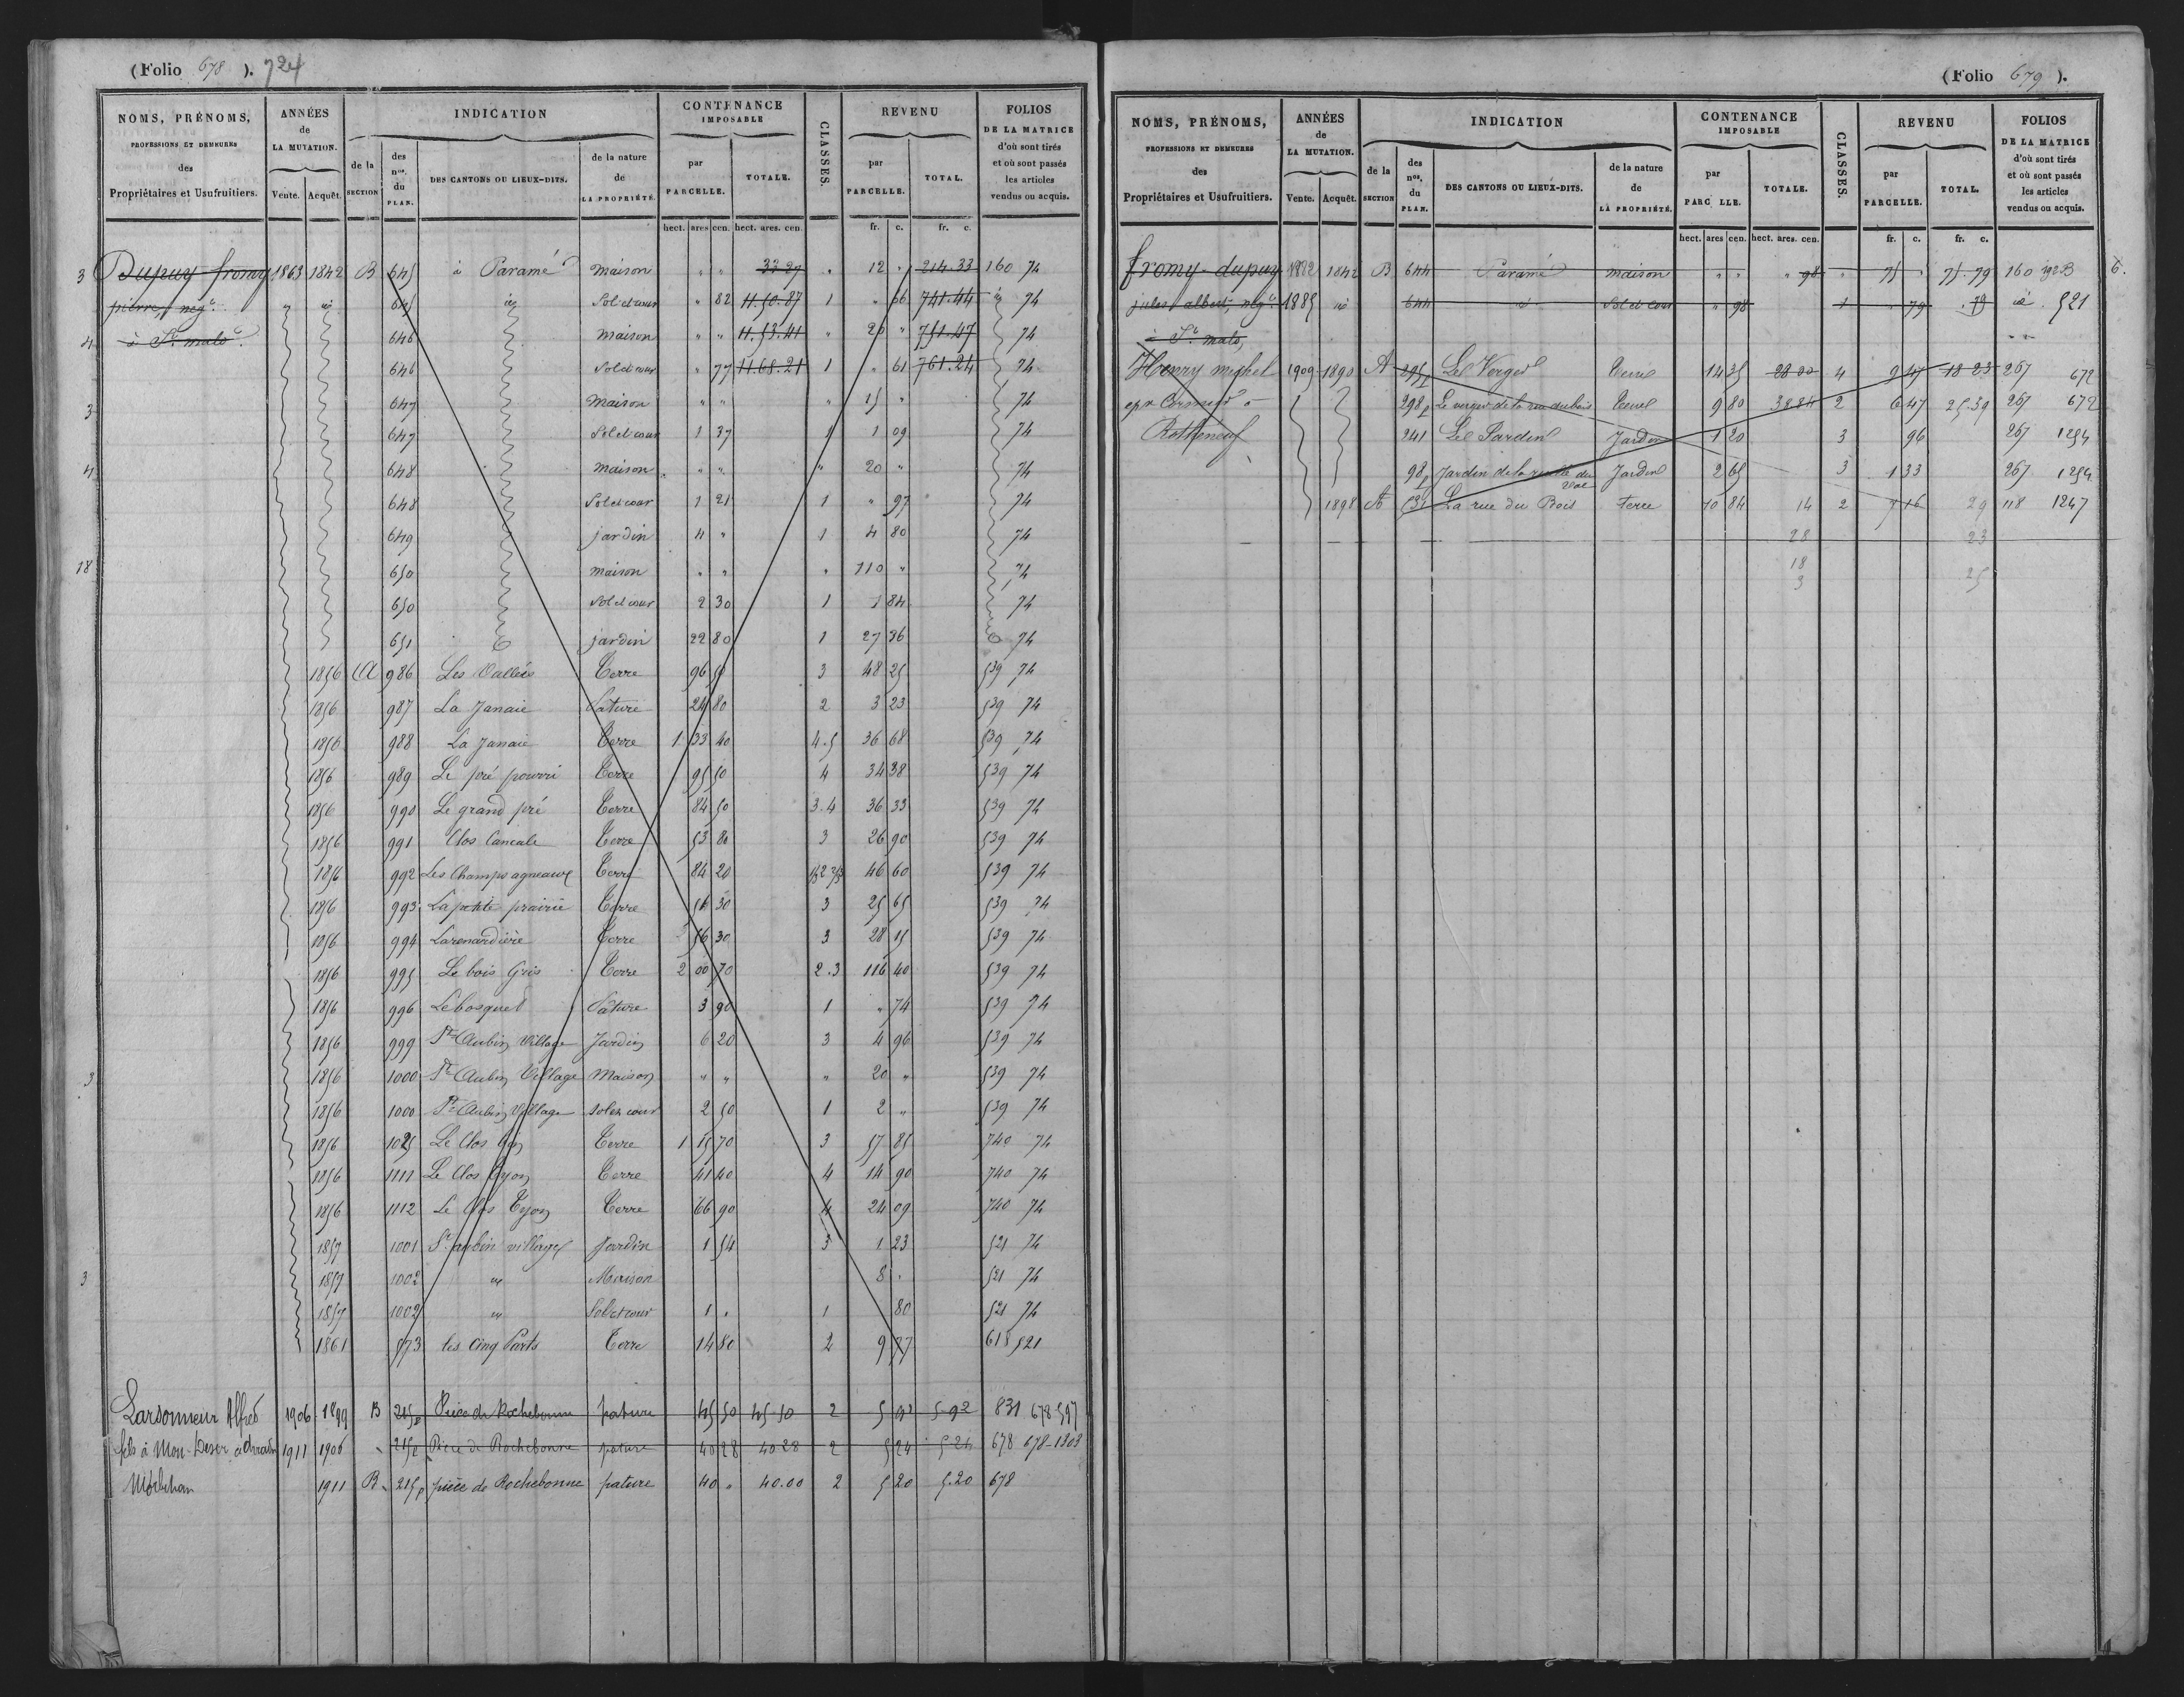 (Folio 678 ). 724
NOMS, PRÉNOMS, PROFESSIONS ET DEMEURES des Propriétaires et Usufruitiers.
ANNÉES de LA MUTATION. Vente. Acquêt.
INDICATION de la SECTION des nos. du PLAN. DES CANTONS OU LIEUX-DITS. de la nature de LA PROPRIÉTÉ.
CONTENANCE IMPOSABLE par PARCELLE. TOTALE.
CLASSES.
REVENU par PARCELLE. TOTAL.
FOLIOS DE LA MATRICE d'où sont tirés et où sont passés les articles vendus ou acquis.
hect. ares cen. hect. ares. cen. fr. c. fr. c.
3 Dupuy fromy 1863 1842 B 645 à Paramé maison " " 33 27 " 12 " 214.33 160 74
pierre, negt. " id 645 id Sol et cour " 82 11.50.87 1 " 66 741.44 id 74
4 à St. malo. 646 Maison " " 11.53.41 " 20 " 751.47 74
646 Sol et cour " 77 11.68.21 1 " 61 761.24 74
3 647 Maison " " " 15 " 74
647 Sol et cour 1 37 1 1 09 74
4 648 Maison " " " 20 " 74
648 Sol et cour 1 21 1 " 97 74
649 jardin 4 " 1 4 80 74
18 650 maison " " " 110 " 74
650 Sol et cour 2 30 1 1 84 74
651 jardin 22 80 1 27 36 74
1856 A 986 Les Vallées Terre 96 50 3 48 25 539 74
1856 987 La Janaie Pature 24 80 2 3 23 539 74
1856 988 La Janaie Terre 1 33 40 4.5 36 68 539 74
1856 989 Le pré pourri Terre 95 50 4 34 38 539 74
1856 990 Le grand pré Terre 84 50 3.4 36 33 539 74
1856 991 Clos Cancale Terre 53 80 3 26 90 539 74
1856 992 Les Champs agneaux Terre 84 20 46 60 539 74
1856 993 La petite prairie Terre 51 30 3 25 65 539 74
1856 994 Larenardière Terre 56 30 3 28 15 539 74
1856 995 Le bois Gris Terre 2 00 70 2.3 116 40 539 74
1856 996 Lebosquet Pâture 3 90 1 " 74 539 74
1856 999 St Aubin Village Jardin 6 20 3 4 96 539 74
3 1856 1000 St Aubin Village Maison " " " 20 " 539 74
1856 1000 St Aubin Village Sol et cour 2 50 1 2 " 539 74
1856 1025 Le Clos Terre 1 15 70 3 57 85 740 74
1856 1111 Le Clos Tyon Terre 41 40 4 14 90 740 74
1856 1112 Le Clos Tyon Terre 66 90 4 24 09 740 74
1857 1001 St. aubin village Jardin 1 54 3 1 23 521 74
3 1857 1002 id Maison 8 . 521 74
1857 1002 id Sol et cour 1 . 1 80 521 74
1861 573 les Cinq Parts Terre 14 80 2 9 77 618 521
Larsonneur Alfred 1906 1899 B 215p Pièce de Rochebonne pature 45 50 45 50 2 5 92 5.92 831 678-597
fils à Mon-Desir à 1911 1906 " 215p Pièce de Rochebonne pature 40 28 40 28 2 5 24 5.24 678 678-1303
Morbihan 1911 B 215p pièce de Rochebonne pature 40 " 40.00 2 5 20 5.20 678
(Folio 679 ).
NOMS, PRÉNOMS, PROFESSIONS ET DEMEURES des Propriétaires et Usufruitiers.
ANNÉES de LA MUTATION. Vente. Acquêt.
INDICATION de la SECTION des nos. du PLAN. DES CANTONS OU LIEUX-DITS. de la nature de LA PROPRIÉTÉ.
CONTENANCE IMPOSABLE par PARC LLE. TOTALE.
CLASSES.
REVENU par PARCELLE. TOTAL.
FOLIOS DE LA MATRICE d'où sont tirés et où sont passés les articles vendus ou acquis.
hect. ares cen. hect. ares. cen. fr. c. fr. c.
fromy-dupuy 1882 1842 B 644 Paramé maison " " " 98 " 75 " 75.79 160 6.
jules albert, negt. 1885 id 644 id Sol et cour " 98 1 " 79 79 id 521
à St. malo,
Henry michel 1909 1890 A 295p Le Verger Terre 14 35 28 00 4 9 47 18 23 267 672
298p Le verger de la rue du bois Terre 9 80 38 84 2 6 47 25.39 267 672
Rotheneuf 241 Le Jardin Jardin 1 20 3 96 267 1254
98p Jardin de la ruette du Jardin 2 65 3 1 33 267 1254
1898 A 531 La rue du Bois Terre 10 84 14 2 7 16 29 118 1247
28 23
18
3 25